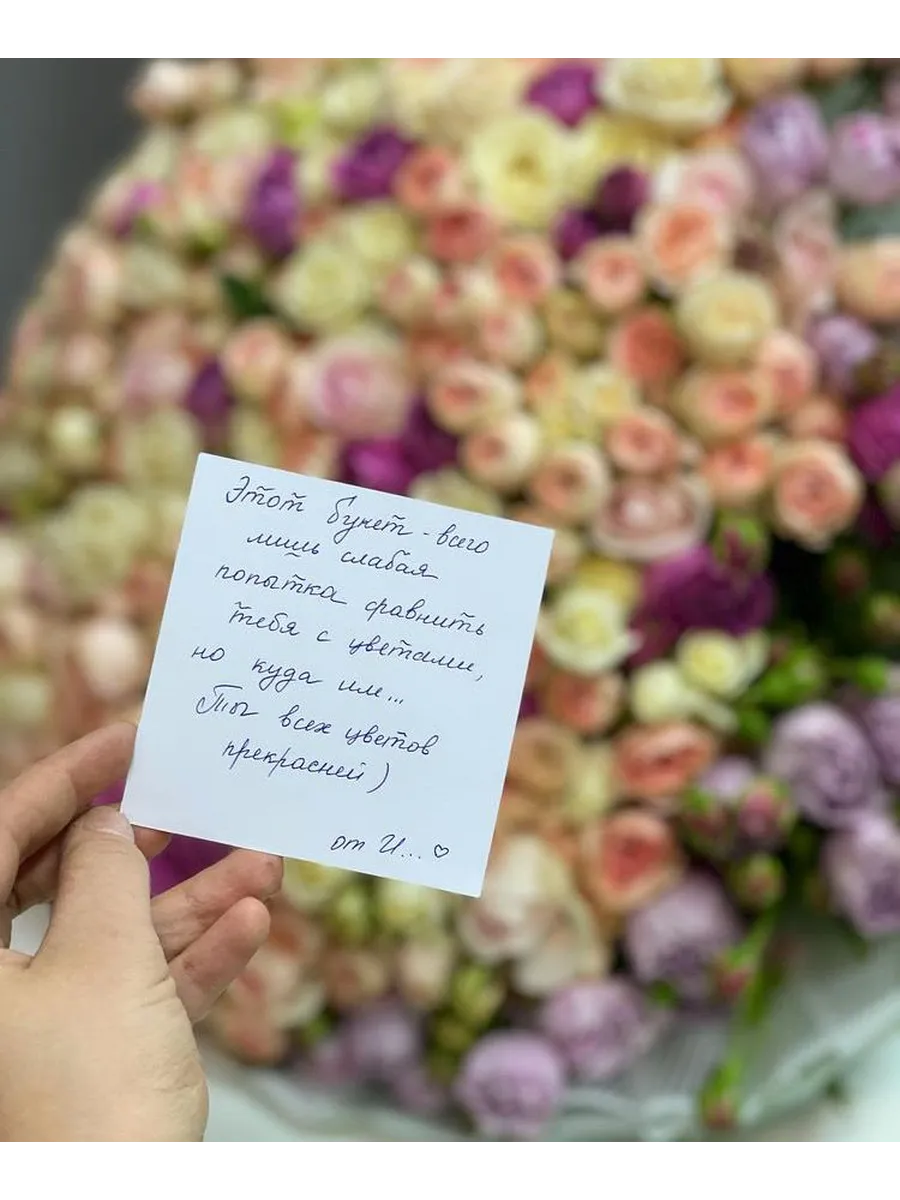 Этот букет - всего
лишь слабая
попытка сравнить
тебя с цветами,
но куда им...
Ты всех цветов
прекрасней)
от И...♡